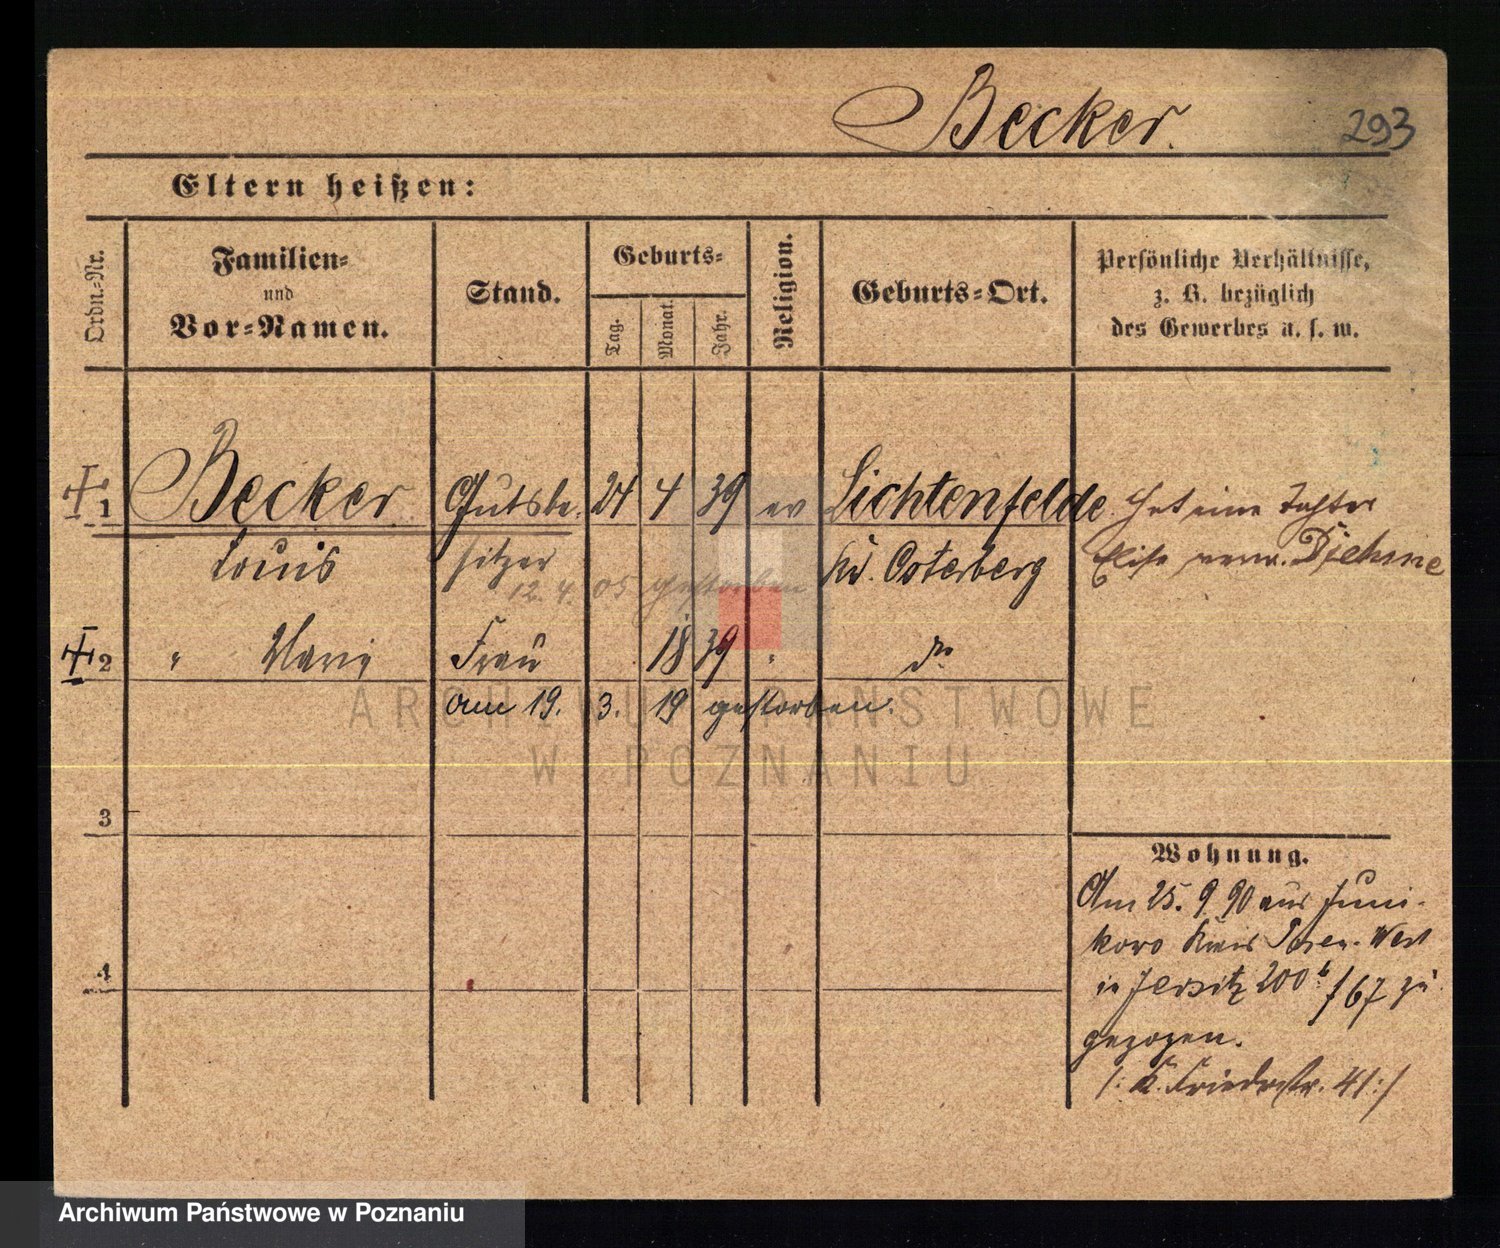 Becker.
293
Eltern heißen:
Ordn.-Nr.
Familien-
und
Vor-Namen.
Stand.
Geburts-
Tag.
Monat.
Jahr.
Religion.
Geburts-Ort.
Persönliche Verhältnisse,
z. B. bezüglich
des Gewerbes u. s. w.
1 Becker Gutsbe- 24 4 39 ev Lichtenfelde Hat eine Tochter
Louis sitzer Kr. Osterberg Elise verw. Diehme
12. 4. 05 gestorben
2 " Marie Frau 18 39 " do
am 19. 3. 19 gestorben.
ARCHIWUM PAŃSTWOWE
W POZNANIU
3
Wohnung.
Am 25. 9. 90 aus Juni-
kowo Kreis Posen-West
in Jersitz 200b/67 zu
gezogen.
/: K. Friedrstr. 41 :/
4
Archiwum Państwowe w Poznaniu